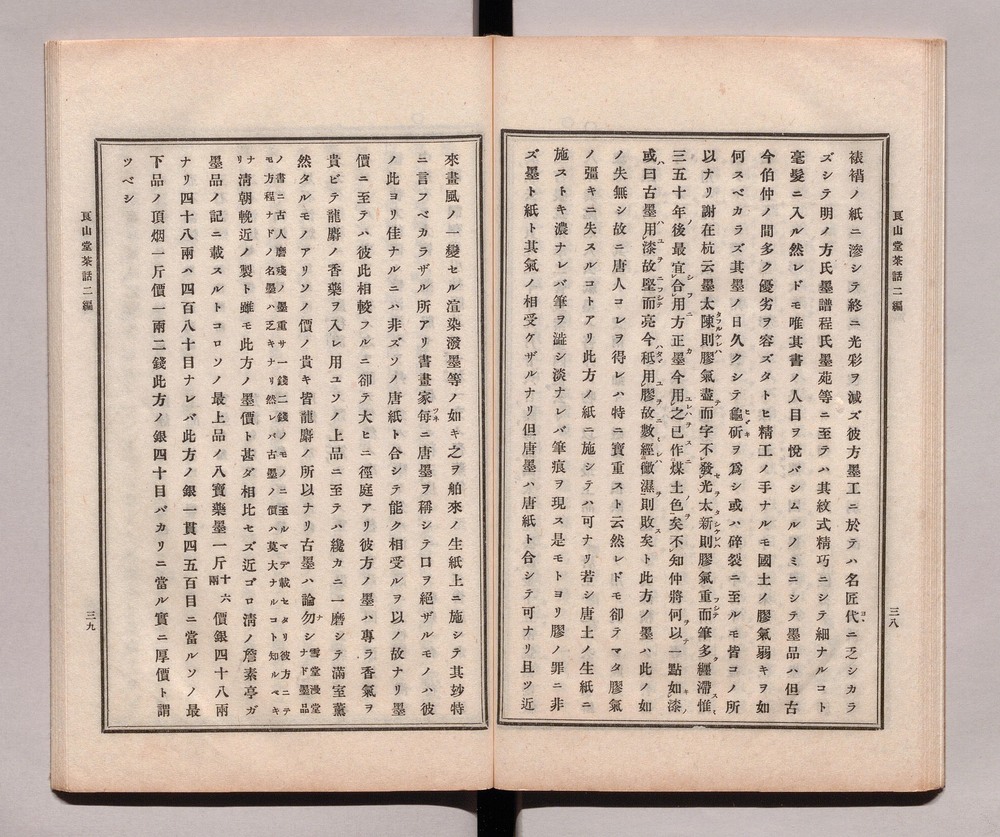 瓦山堂茶話二編
三八
裱褙ノ紙ニ滲シテ終ニ光彩ヲ減ズ彼方墨工ニ於テハ名匠代ニ乏シカラ
ズシテ明ノ方氏墨譜程氏墨苑等ニ至テハ其紋式精巧ニシテ細ナルコト
毫髮ニ入ル然レドモ唯其書ノ人目ヲ悅バシムルノミニシテ墨品ハ但古
今伯仲ノ間多ク優劣ヲ容ズタトヒ精工ノ手ナルモ國土ノ膠氣弱キヲ如
何スベカラズ其墨ノ日久クシテ龜斫ヲ爲シ或ハ碎裂ニ至ルモ皆コノ所
以ナリ謝在杭云墨太陳則膠氣盡而字不發光太新則膠氣重而筆多纒滯惟
三五十年後最宜合用方正墨今用之已作煤土色矣不知仲將何以一點如漆
或曰古墨用漆故堅而亮今秪用膠故數經黴濕則敗矣ト此方ノ墨ハ此ノ如
ノ失無シ故ニ唐人コレヲ得レハ特ニ寶重スト云然レドモ卻テマタ膠氣
ノ彊キニ失スルコトアリ此方ノ紙ニ施シテハ可ナリ若シ唐土ノ生紙ニ
施ストキ濃ナレバ筆ヲ澁シ淡ナレバ筆痕ヲ現ス是モトヨリ膠ノ罪ニ非
ズ墨ト紙ト其氣ノ相受ケザルナリ但唐墨ハ唐紙ト合シテ可ナリ且ツ近
來畫風ノ一變セル渲染潑墨等ノ如キ之ヲ舶來ノ生紙上ニ施シテ其玅特
ニ言フベカラザル所アリ書畫家每ニ唐墨ヲ稱シテ口ヲ絕ザルモノハ彼
ノ此ヨリ佳ナルニハ非ズソノ唐紙ト合シテ能ク相受ルヲ以ノ故ナリ墨
價ニ至テハ彼此相較フルニ卻テ大ヒニ徑庭アリ彼方ノ墨ハ專ラ香氣ヲ
貴ビテ龍麝ノ香藥ヲ入レ用ユソノ上品ニ至テハ纔カニ一磨シテ滿室薰
然タルモノアリソノ價ノ貴キ皆龍麝ノ所以ナリ古墨ハ論勿シ雪堂漫堂ナド墨品
ノ書ニ古人磨殘ノ墨重サ一錢二錢ノモノニ至ルマデ載セタリ彼方ニテ
モ方程ナドノ名墨ハ乏キナリ然レバ古墨ノ價ハ莫大ナルコト知ルベキ
ナリ淸朝輓近ノ製ト雖モ此方ノ墨價ト甚ダ相比セズ近ゴロ淸ノ詹素亭ガ
墨品ノ記ニ載スルトコロソノ最上品ノ八寶藥墨一斤十六兩價銀四十八兩
ナリ四十八兩ハ四百八十目ナレバ此方ノ銀一貫四五百目ニ當ルソノ最
下品ノ頂烟一斤價一兩二錢此方ノ銀四十目バカリニ當ル實ニ厚價ト謂
ツベシ
瓦山堂茶話二編
三九